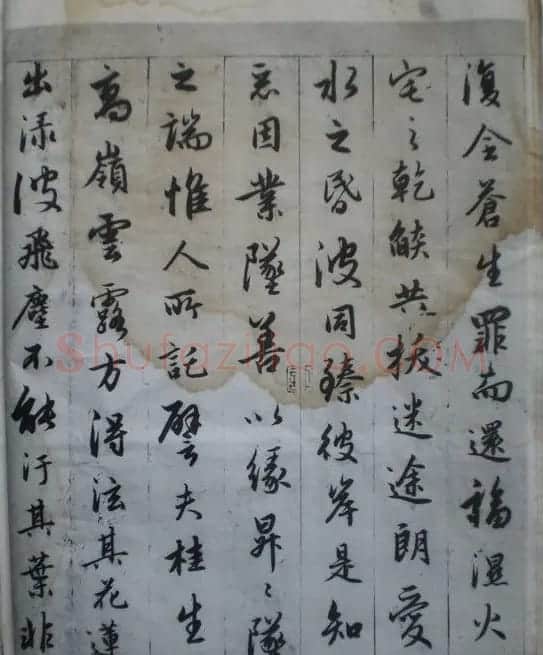 復令蒼生罪而還福濕火
宅之乾燄共拔迷途朗愛
水之昏波同臻彼岸是知
惡因業墜善以緣昇〻墜
之端惟人所託譬夫桂生
高嶺雲露方得泫其花蓮
出淥波飛塵不能汙其葉非
Shufaziliao.COM